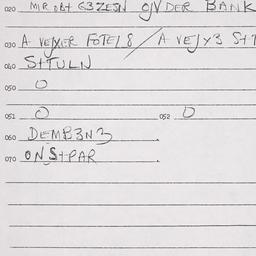 020 MIR OBT G3ZESN O/V DER BANK
030 A VEJXER FOTEL 8 / A VEJY3 S+T
040 S+TULN
050 O
051 O 052 O
060 DEMB3N3
070 ONS+PAR